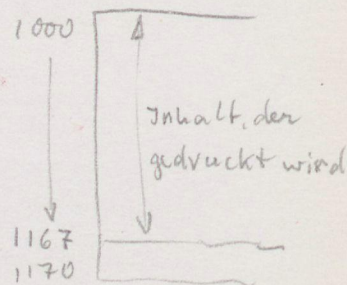 1000
Inhalt, der
gedruckt wird
1167
1170